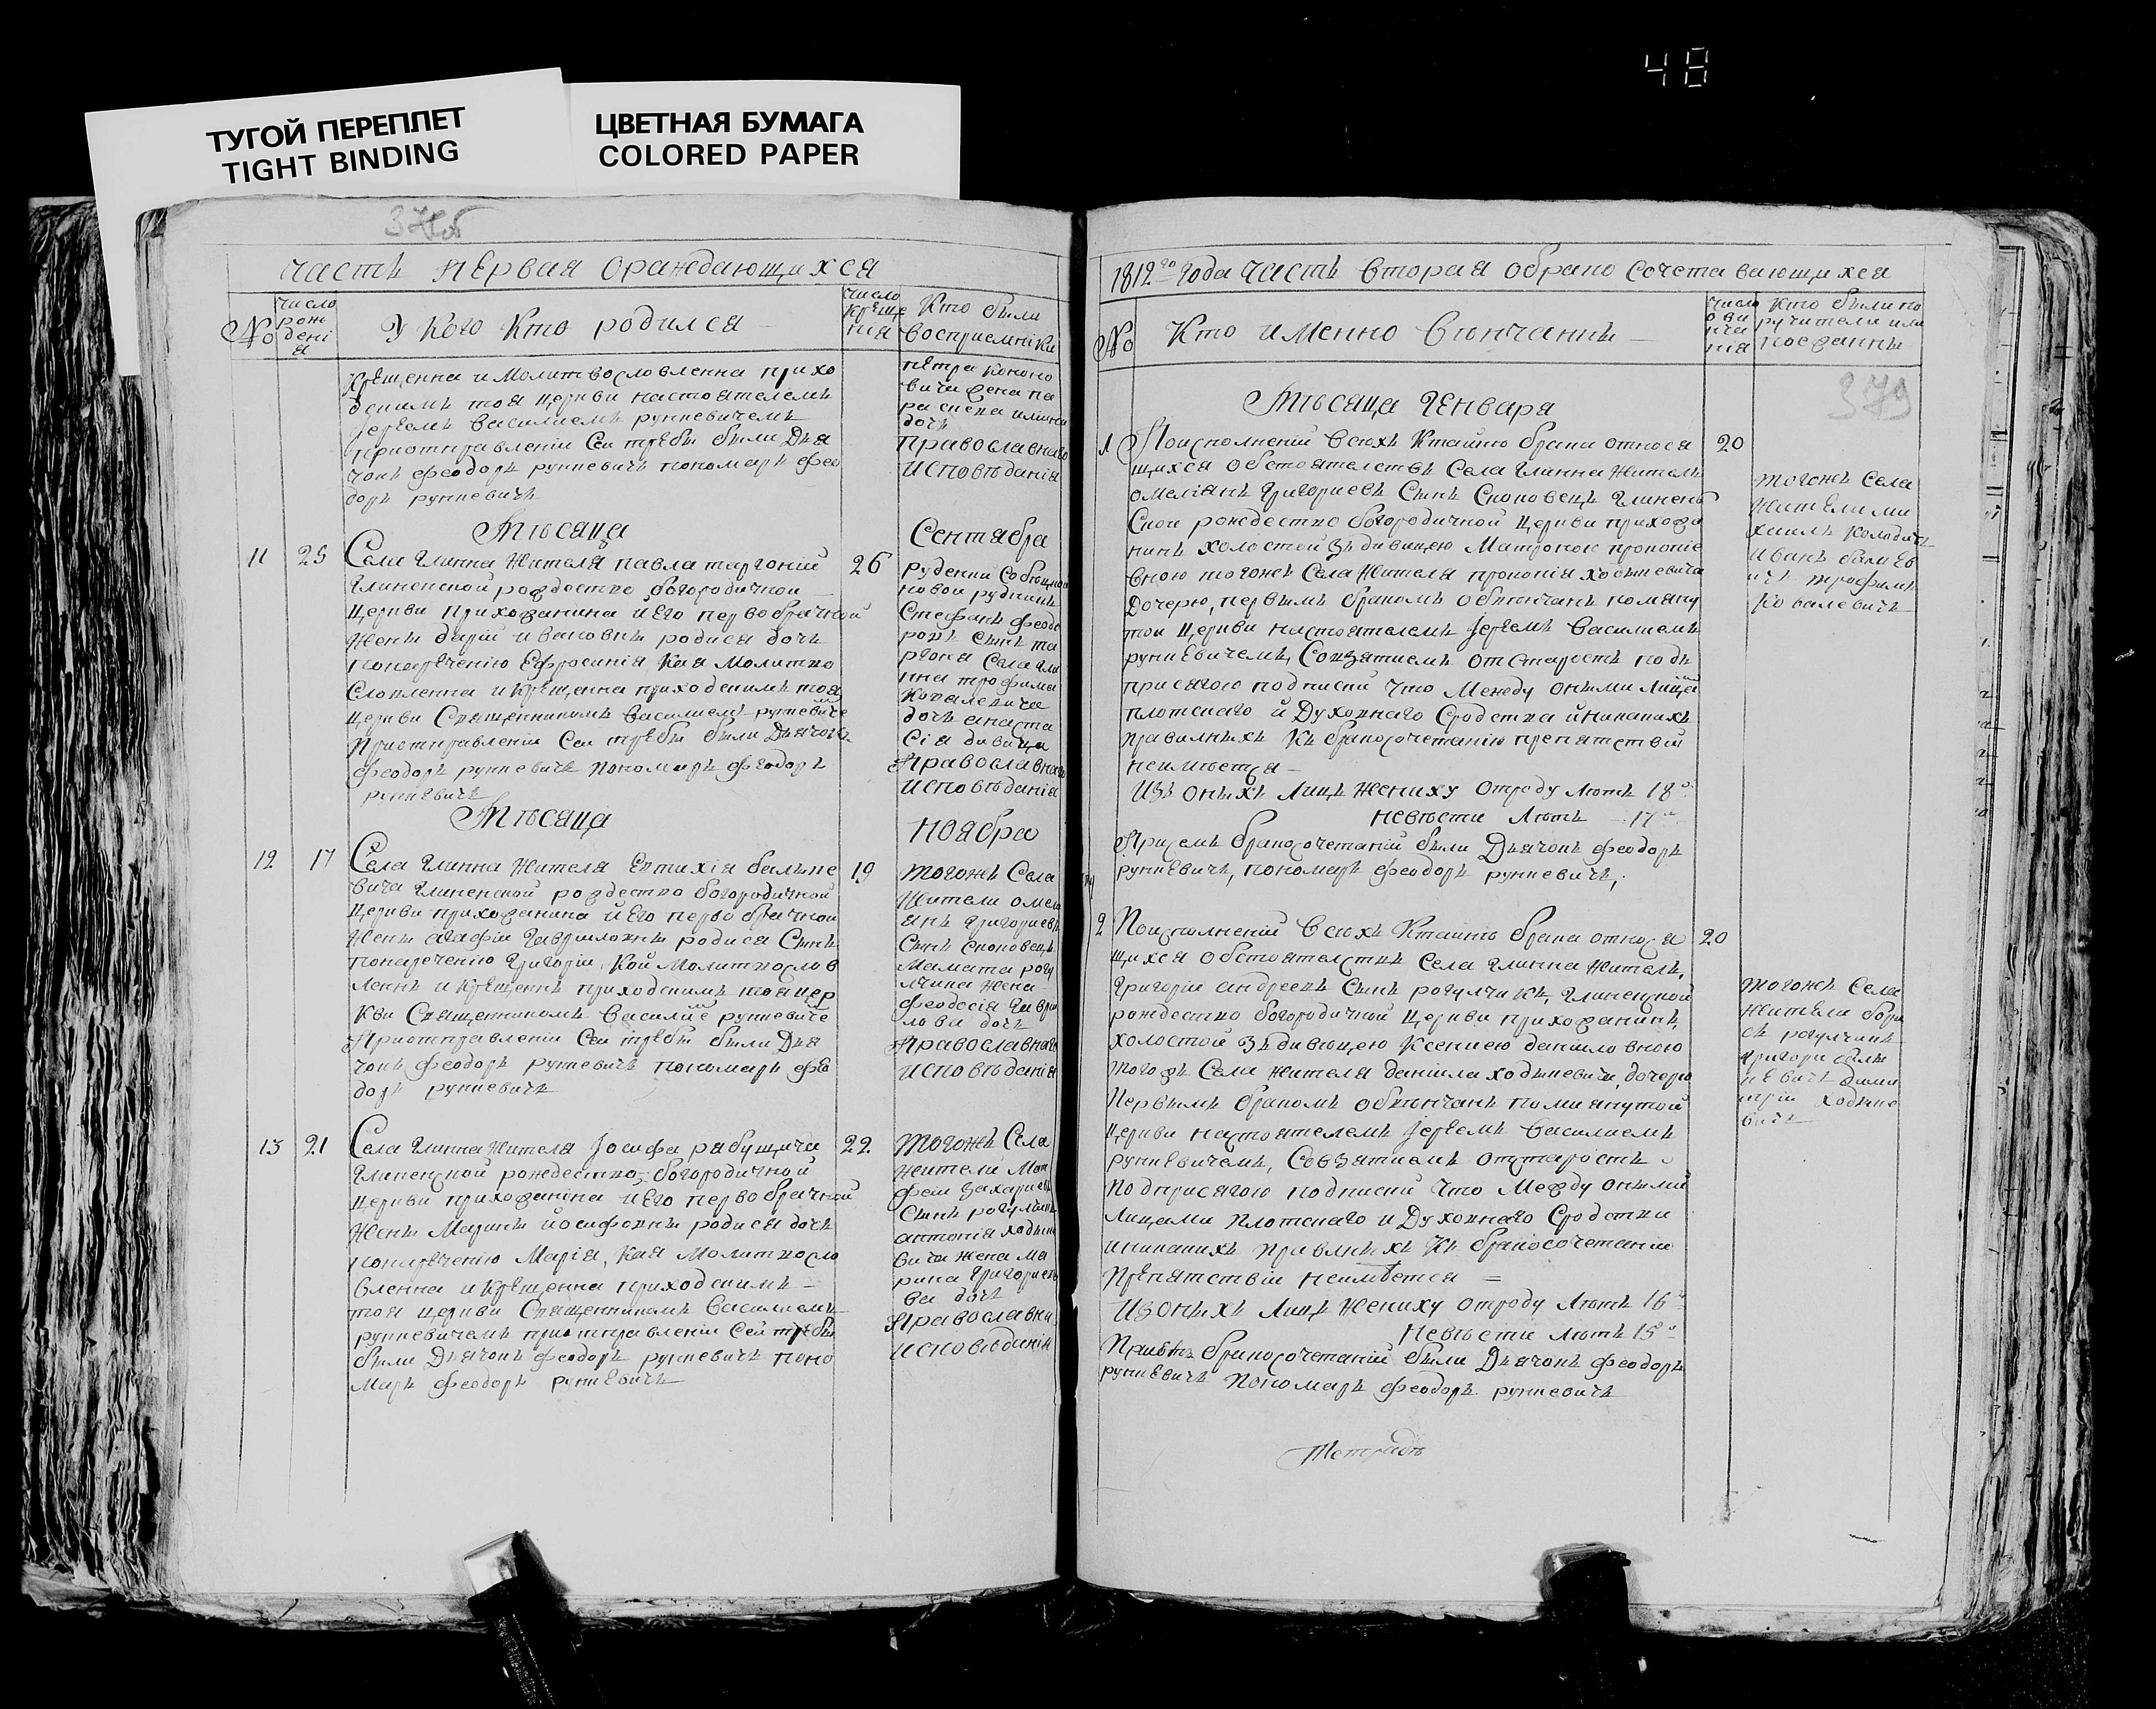 48
ТУГОЙ ПЕРЕПЛЕТ
TIGHT BINDING
ЦВЕТНАЯ БУМАГА
COLORED PAPER
часть первая ораждающихся
№
число рож дені я
У кого кто родился
число креще нія
Кто были восприемніки
крещенна и молитвословленна прихо
дскимъ тоя церкви настоятелемъ
Іереемъ Василиемъ рункевичемъ
приотправленіи сеи требы были Дья
чокъ феодоръ рункевичъ пономаръ фео
доръ рункевичъ
петра кононо
вича жена па
раскева
дочь
православнаго
исповѣданія
Мѣсяца
Сентября
11 25
Села Глинна жителя павла
Глиненской рождество богородичной
Церкви прихожанина и его первобрачной
жены даріи ивановны родися дочь
понаречению Ефросинія кая молитво
словленна и крещенна приходскимъ тоя
церкви Священникомъ василиемъ рункевиче
приотправленіи сеи требы были Дьячокъ
феодоръ рункевичъ пономаръ феодоръ
рункевичъ
26
Стефанъ феодо
ровъ сынъ
Села гли
нна трофима
Ковалевича
дочь анаста
сія дивица
Православнаго
исповѣданія
Мѣсяца
Ноября
12 17
Села Глинна жителя Евтихія
вича глиненской рождество богородичной
Церкви прихожанина и его первобрачной
жены агафіи гавриловны родися сынъ
понаречению григорій, кой молитвослов
ленъ и крещенъ приходскимъ тоя цер
кви Священникомъ василие рункевиче
Приотправленіи сеи требы были Дья
чокъ феодоръ рункевичъ пономаръ фео
доръ рункевичъ
19
тогожъ Села
жители омел
анъ григориевъ
сынъ сноповецъ
рогу
лчика жена
феодосія гаври
лова дочь
Православнаго
исповѣданія
13 21
Села глинна жителя Іосифа рабущича
глиненской рождество богородичной
церкви прихожанина и его первобрачной
жены марины иосифовны родися дочь
понаречению Марія, кая молитвосло
вленна и крещенна приходскимъ
тоя церкви Священникомъ василиемъ
рункевичемъ приотправленіи сеи требы
были Дьячокъ феодоръ рункевичъ поно
маръ феодоръ рункевичъ
22
тогожъ Села
жители мат
феи захариевъ
сынъ рогулчикъ
антонія ходыке
вича жена ма
рина григорие
ва дочь
Православна
исповѣданія
1812го года часть вторая обрако сочетавающихся
№
Кто именно вѣнчанны
число овѣ нча нія
Кто были по ручители или поезжанны
379
Мѣсяца Генваря
1
Поисполненіи всѣхъ ктайнѣ брака относя
щихся обстоятелствъ Села глинна житель
омеліянъ григориевъ сынъ сноповецъ глинен
ской рождество богородичной церкви прихожа
нинъ холостой зъ дивицею Матроною прокопие
вною тогожъ Села жителя прокопія ходыкевича
дочерю, первымъ бракомъ обвѣнчанъ помяну
тои церкви настоятелемъ Іереемъ Василиемъ
рункевичемъ, Совзятиемъ отстаростъ подъ
присягою подписки что между оными лицами
плотскаго и Духовнаго Сродства и никакихъ
правилныхъ къ бракосочетанію препятствій
неимѣетца
Изъ оныхъ лицъ жениху отроду лѣтъ 18
невѣсти лѣтъ 17
Присемъ бракосочетаніи были Дьячокъ феодоръ
рункевичъ, пономаръ феодоръ рункевичъ,
20
тогожъ Села
жители ми
хаилъ
иванъ
трофимъ
ковалевичъ
2
Поисполненіи всѣхъ ктайнѣ брака относя
щихся обстоятелствъ Села глинна житель,
григоріи андреевъ сынъ рогулчикъ, глиненской
рождество богородичной церкви прихожанинъ,
холостой зъ дивицею Ксениею даниловною
тогожъ Села жителя даніила ходыкевича, дочерю
первымъ бракомъ обвѣнчанъ помянутой
церкви настоятелемъ Іереемъ василиемъ
рункевичемъ, Совзятиемъ отстаростъ
подприсягою подписки что между оными
лицами плотскаго и Духовнаго Сродства
иникакихъ правлныхъ къ бракосочетанию
препятствіи неимѣется
Изъ оныхъ лицъ жениху отроду лѣтъ 16
невѣсти лѣтъ 15
бракосочетаніи были Дьячокъ феодоръ
рункевичъ пономаръ феодоръ рункевичъ
20
тогожъ Села
жители бори
съ рогулчикъ
григори
дими
трій ходыке
вичъ